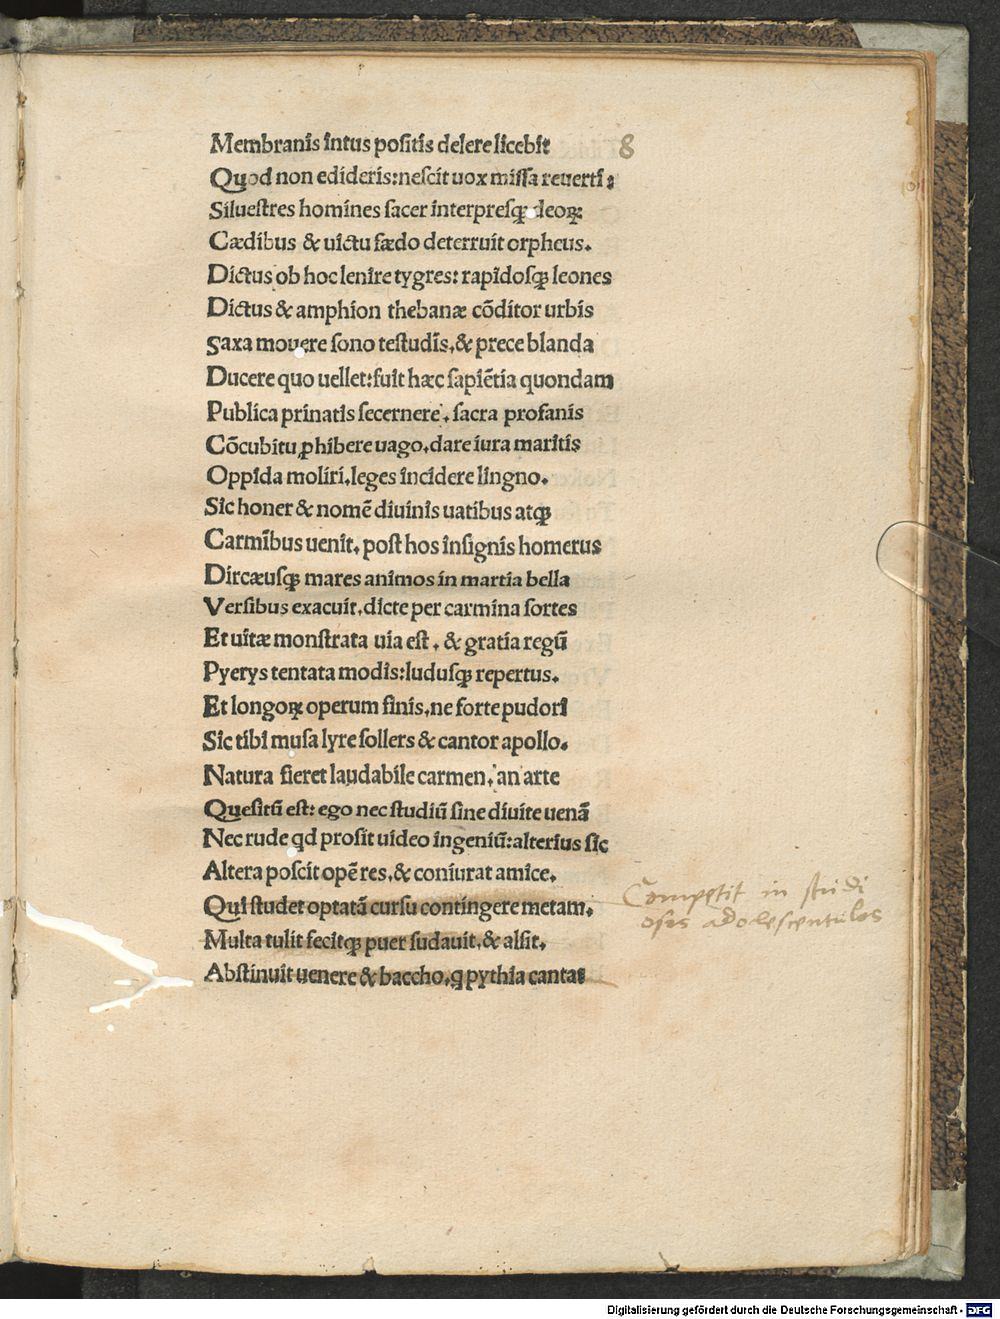 Membranis intus positis delere licebit
8
Quod non edideris: nescit uox missa reuerti;
Siluestres homines sacer interpresqꝫ deoꝝ:
Cædibus & uictu fædo deterruit orpheus.
Dictus ob hoc lenire tygres: rapidosqꝫ leones
Dictus & amphion thebanæ cōditor urbis
Saxa mouere sono testudis,& prece blanda
Ducere quo uellet:fuit hæc sapiētia quondam
Publica prinatis secernere, sacra profanis
Cōcubitu ꝓhibere uago,dare iura maritis
Oppida moliri,leges incidere lingno.
Sic honer & nomē diuinis uatibus atqꝫ
Carmībus uenit, post hos insignis homerus
Dircæusqꝫ mares animos in martia bella
Versibus exacuit,dicte per carmina sortes
Et uitæ monstrata uia est, & gratia regū
Pyerys tentata modis:ludusqꝫ repertus.
Et longoꝝ operum finis,ne forte pudori
Sic tibi musa lyre sollers & cantor apollo.
Natura fieret laudabile carmen,an arte
Quesitū est: ego nec studiū sine diuite uenā
Nec rude qd prosit uideo ingeniū:alterius sic
Altera poscit opē res,& coniurat amice.
Qui studet optatā cursu contingere metam,
Competit in studi
osos adolescentulos
Multa tulit fecitqꝫ puer sudauit,& alsit,
Abstinuit uenere & baccho,q pythia cantat
Digitalisierung gefördert durch die Deutsche Forschungsgemeinschaft - DFG